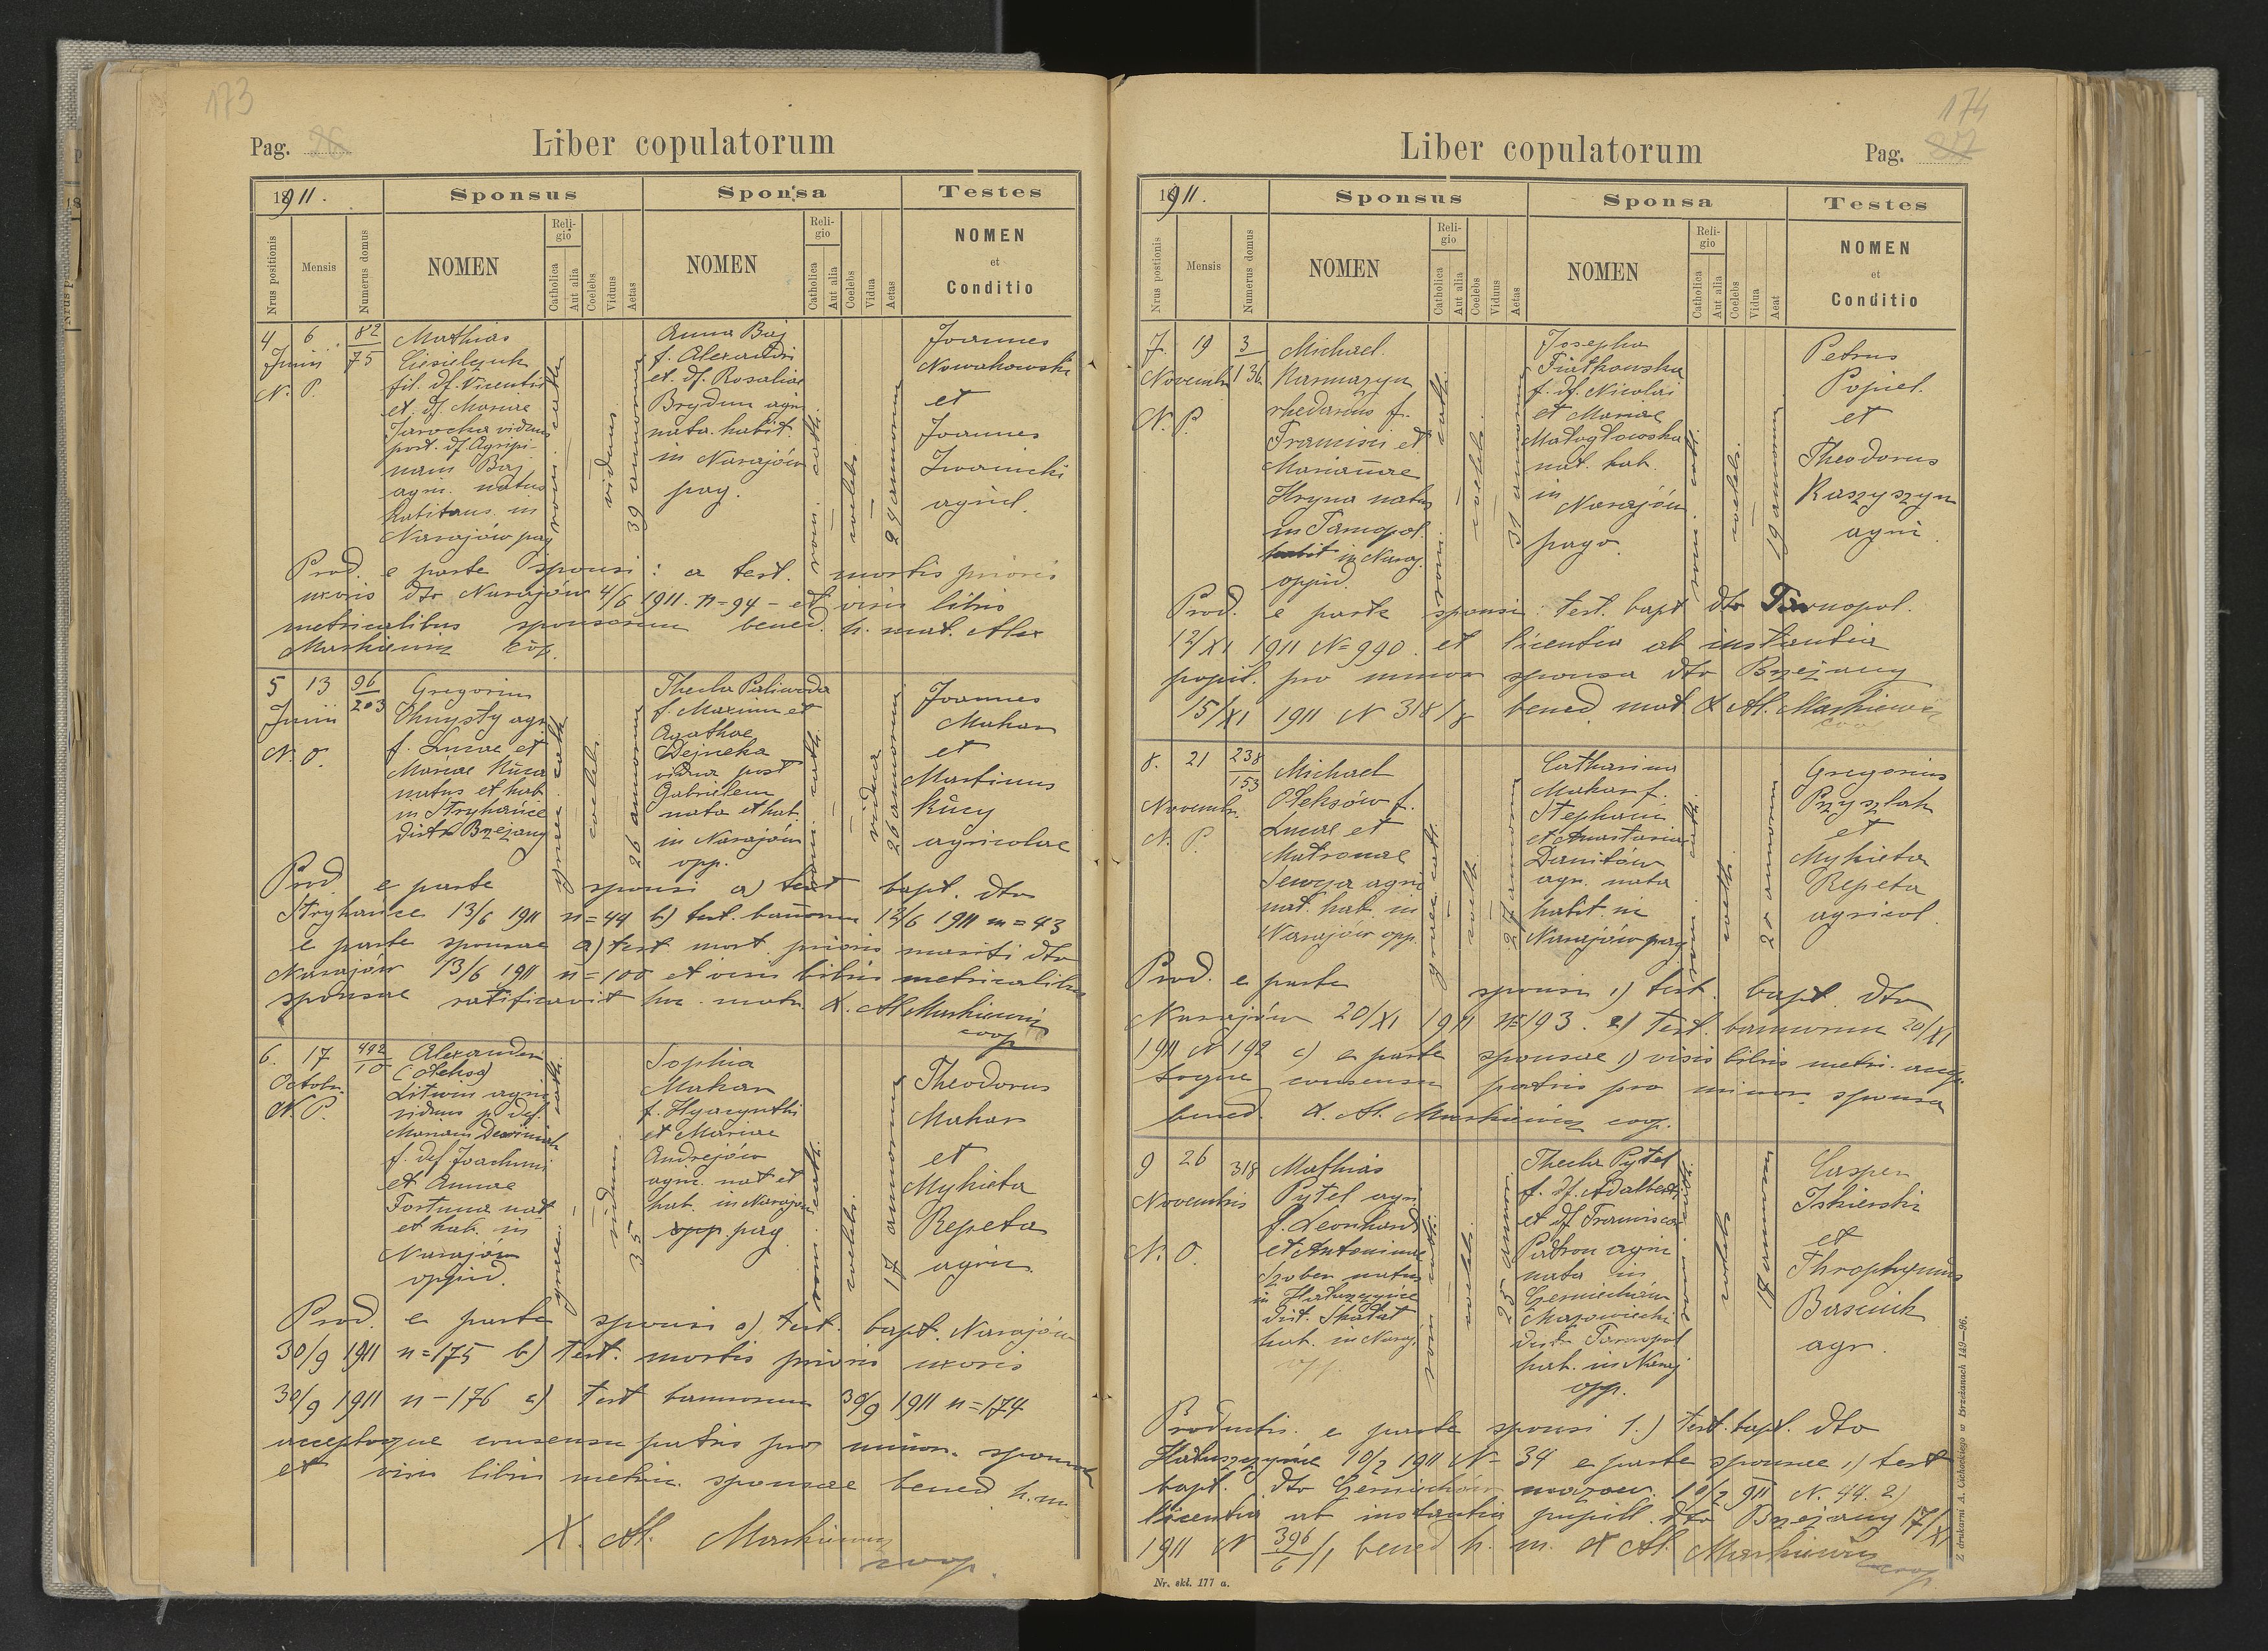 173
Pag. 26
Liber copulatorum
1911.
Sponsus
Sponsa
Testes
Nrus positionis
Mensis
Numerus domus
NOMEN
Religio
Catholica
Aut alia
Coelebs
Viduus
Aetas
NOMEN
Religio
Catholica
Aut alia
Coelebs
Vidua
Aetas
NOMEN
et
Conditio
4 6 82
Junii 75
N. P.
Mathias
fil. df. Vicentii
et df. Mariae
Jarocha viduus
post. df. Agripi-
nam Baj
agric. natus
habitans in
Narajów pag
rom. cath.
viduus
39 annorum
Anna Baj
f. Alexandri
et. df. Rosaliae
Brydun agric
nata. habit.
in Narajów
pag.
rom. cath.
coelebs
24 annorum
Joannes
Nowakowski
et
Joannes
Iwanicki
agricol.
Prod. e parte sponsi: a test. mortis prioris
uxoris dto Narajów 4/6 1911. n=94 - et visis libris
metricalibus sponsorum bened. h. mat. Alex
Maskiewicz cop.
5 13 96
Junii 203
N. O.
Gregorius
Chmysty agr
f. Lucae et
Mariae Kuca
natus et hab
in Stryhańce
distr Brzejany
graec. cath
coelebs
26 annorum
Thecla Paliwoda
f. Maximi et
Agathae
Dejneka
vidua post
Gabrielem
nata et hab.
in Narajów
opp.
rom. cath.
vidua
26 annorum
Joannes
Mahar
et
Martinus
Kucy
agricolae
Prod. e parte sponsi a) test bapt. dto
Stryhańce 13/6 1911 n=44 b) test. bannorum 12/6 1911 n=43
e parte sponsae a) test. mort. prioris mariti dto
Narajów 13/6 1911 n=100 et visis libris metricalibus
sponsae ratificavit hoc matr. X. Al Maskiewicz
coop
6. 17 492
Octobr. 10
N. P.
Alexander
(Oleksa)
Litwin agric
viduus p. def.
f. def Joachimi
et Annae
Fortuna nat
et hab. in
Narajów
oppid.
graec. cath.
viduus
35
Sophia
Mahar
f. Hyacynthi
et Mariae
Andrejów
agric. nat et
hab. in Narajow
opp. pag
rom. cath.
coelebs
17 annorum
Theodorus
Mahar
et
Mykieta
Repeta
agric.
Prod. e parte sponsi a) test. bapt. Narajów
30/9 1911 n=175 b) test. mortis prioris uxoris
30/9 1911 n-176 c) test bannorum 30/9 1911 n=174
acceptoque consensu patris pro minor. sponsa
et visis libris metric. sponsae bened. h. m
X. Al. Maskiewicz
coop.
174
Liber copulatorum
Pag. 27
1911.
Sponsus
Sponsa
Testes
Nrus postionis
Mensis
Numerus domus
NOMEN
Religio
Catholica
Aut alia
Coelebs
Viduus
Aetas
NOMEN
Religio
Catholica
Aut alia
Coelebs
Vidua
Aeat
NOMEN
et
Conditio
7. 19 3
Novembr 136
N. P
Michael
Karmazyn
rhedarius f.
Francisci et
Mariannae
Hryna natus
in Tarnopol.
habit in Naraj.
oppid.
rom. cath.
coelebs
31 annorum
Josepha
Fiatkowska
f. df. Nicolai
et Mariae
Małogłowska
nat. hab.
in
Narajów
pago.
rom. cath.
coelebs.
19 annorum
Petrus
Popiel.
et
Theodorus
Kaszyszyn
agric.
Prod. e parte sponsi: test. bapt dto Tarnopol.
12/XI 1911 N=990. et licentia ab instantia
pupil. pro minor sponsa dto Brzejany
15/XI 1911 N 318/8 bened mat X Al. Maskiewicz
coop
8. 21 238
Novembr. 153
N. P.
Michael
Oleksów f.
Lucae et
Matronae
Sewoja agric
nat. hab. in
Narajów opp.
graec. cath.
coelebs
27 annorum
Catharina
Mahar f.
Stephani
et Anastasiae
Daniłów
agr. nata
habit. in
Narajów pag
rom. cath.
coelebs
20 annorum
Gregorius
Przyszlak
et
Mykieta
Repeta
agricol.
Prod. e parte sponsi 1) test. bapt. dto
Narajów 20/XI 1911 N=193. 2) test. bannorum 20/XI
1911 N 192 c) e parte sponsae 1) visis libris metri. acce
toque consensu patris pro minor. sponsa
bened. X. Al. Maskiewicz coop.
9 26 318
Novembris
N. O.
Mathias
Pytel agri
f. Leonhardi
et Antoninae
Szober natus
in Hałuszczyńce
dist. Skałat
hab. in Naraj.
opp.
rom. cath.
coelebs
25 annor.
Thecla Pytel
f. df. Adalberti
et df. Francisca
Patron agric
nata in
Czernichów
Mazowiecki
distr Tarnopol
hab. in Naraj
opp.
rom. cath.
coelebs
19 annorum
Casper
Iskierski
et
agr.
Productis. e parte sponsi 1.) test. bapt. dto
Hałuszczyńce 10/2 1911 N- 34 e parte sponsae 1) test
bapt. dto Czernichów mazow. 10/2 911 N. 44. 2)
licentia ab instantia pupill. dto Brzejany 17/XI
1911 N 396/6/1 bened h. m. X Al. Maskiewicz
coop.
Nr. skł. 177 a.
Z drukarni A. Cichockiego w Brzeżanach 149—96.